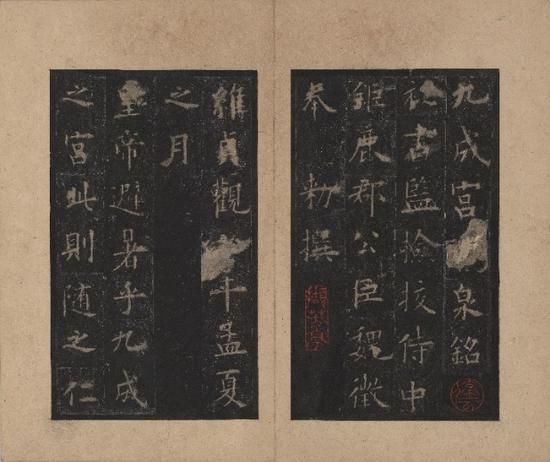 九成宮泉銘
書監撿挍侍中
鉅鹿郡公臣魏徵
奉勑撰
維貞觀年孟夏
之月
皇帝避暑乎九成
之宮此則随之仁